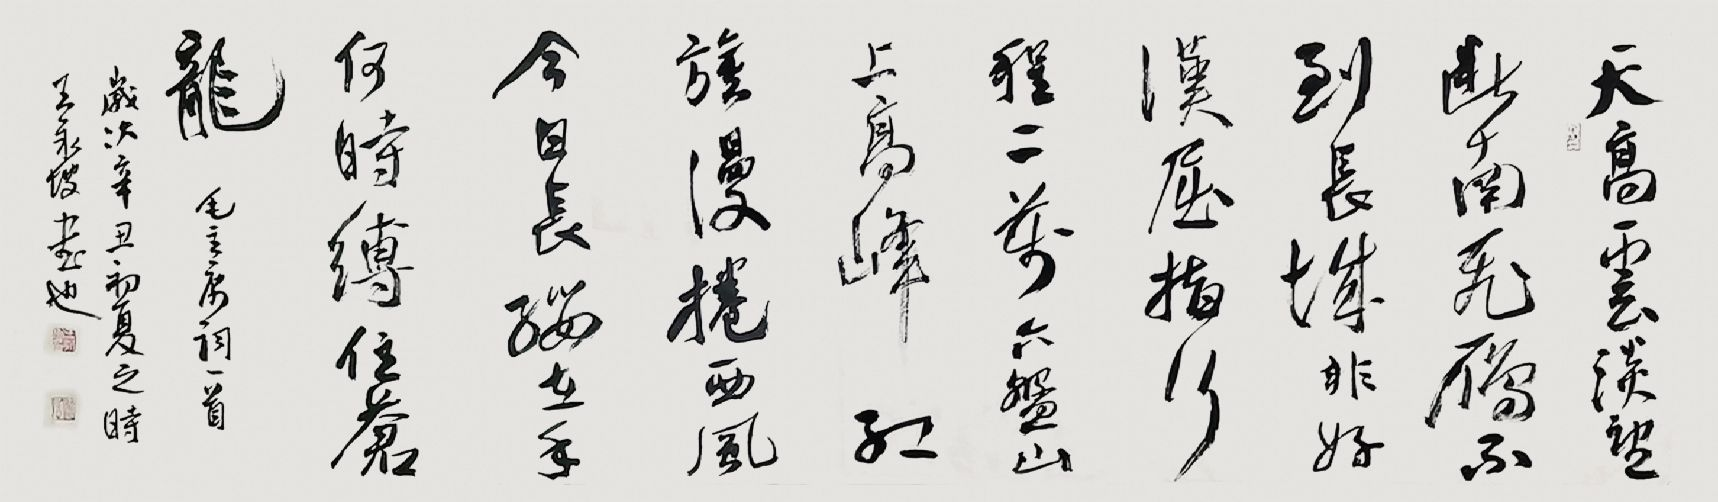 天高雲淡望
斷南飛雁不
到長城非好
漢屈指行
程二萬六盤山
上高峰紅
旗漫捲西風
今日長纓在手
何時縛住蒼
龍
毛主席詞一首
歲次辛丑初夏之時
王永坡書也